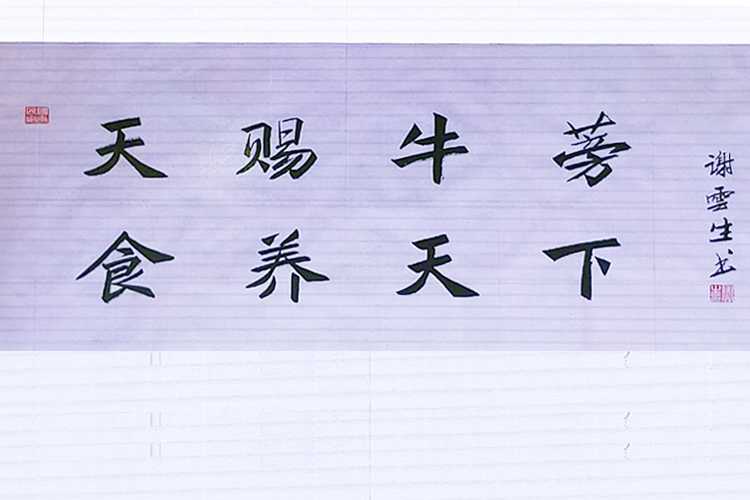 天赐牛蒡
食养天下
谢雲生书